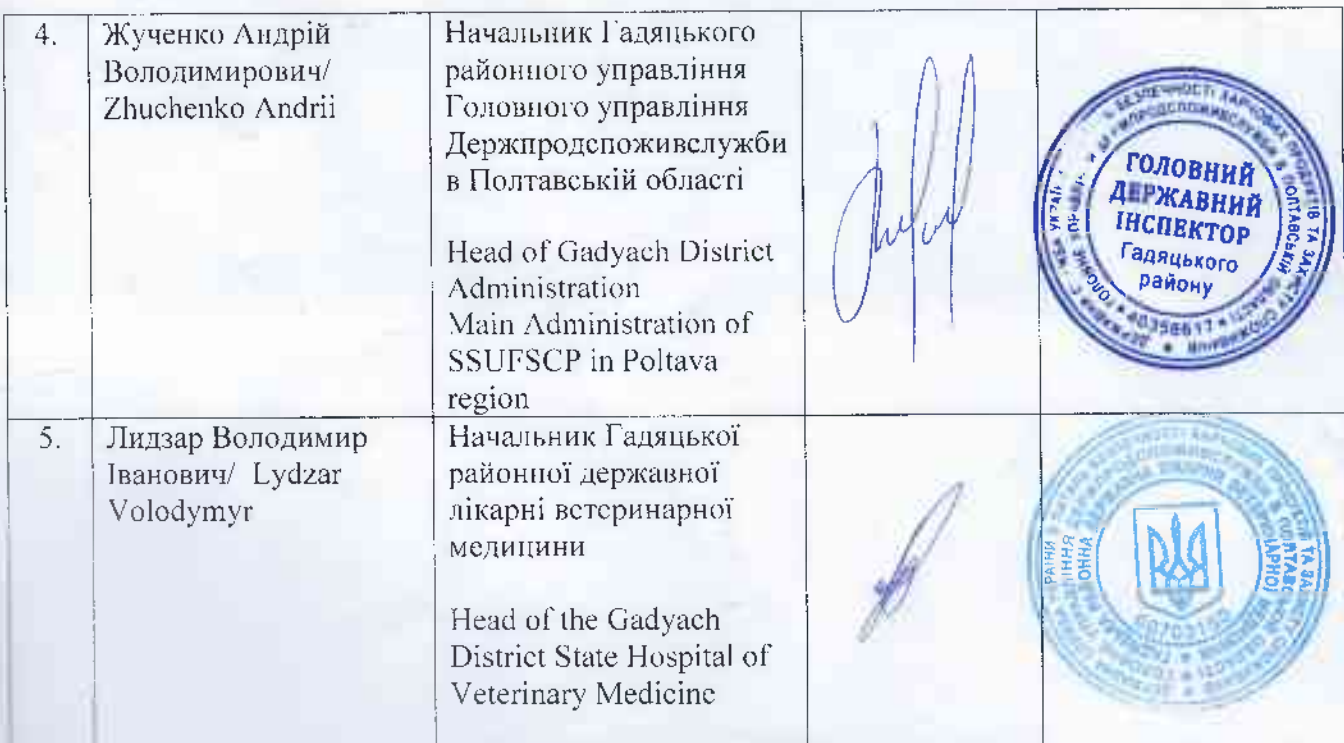 4.
Жученко Андрій
Володимирович/
Zhuchenko Andrii
Начальник Гадяцького
районного управління
Головного управління
Держпродспоживслужби
в Полтавській області
Head of Gadyach District
Administration
Main Administration of
SSUFSCP in Poltava
region
ГОЛОВНИЙ
ДЕРЖАВНИЙ
ІНСПЕКТОР
Гадяцького
району
5.
Лидзар Володимир
Іванович/ Lydzar
Volodymyr
Начальник Гадяцької
районної державної
лікарні ветеринарної
медицини
Head of the Gadyach
District State Hospital of
Veterinary Medicine